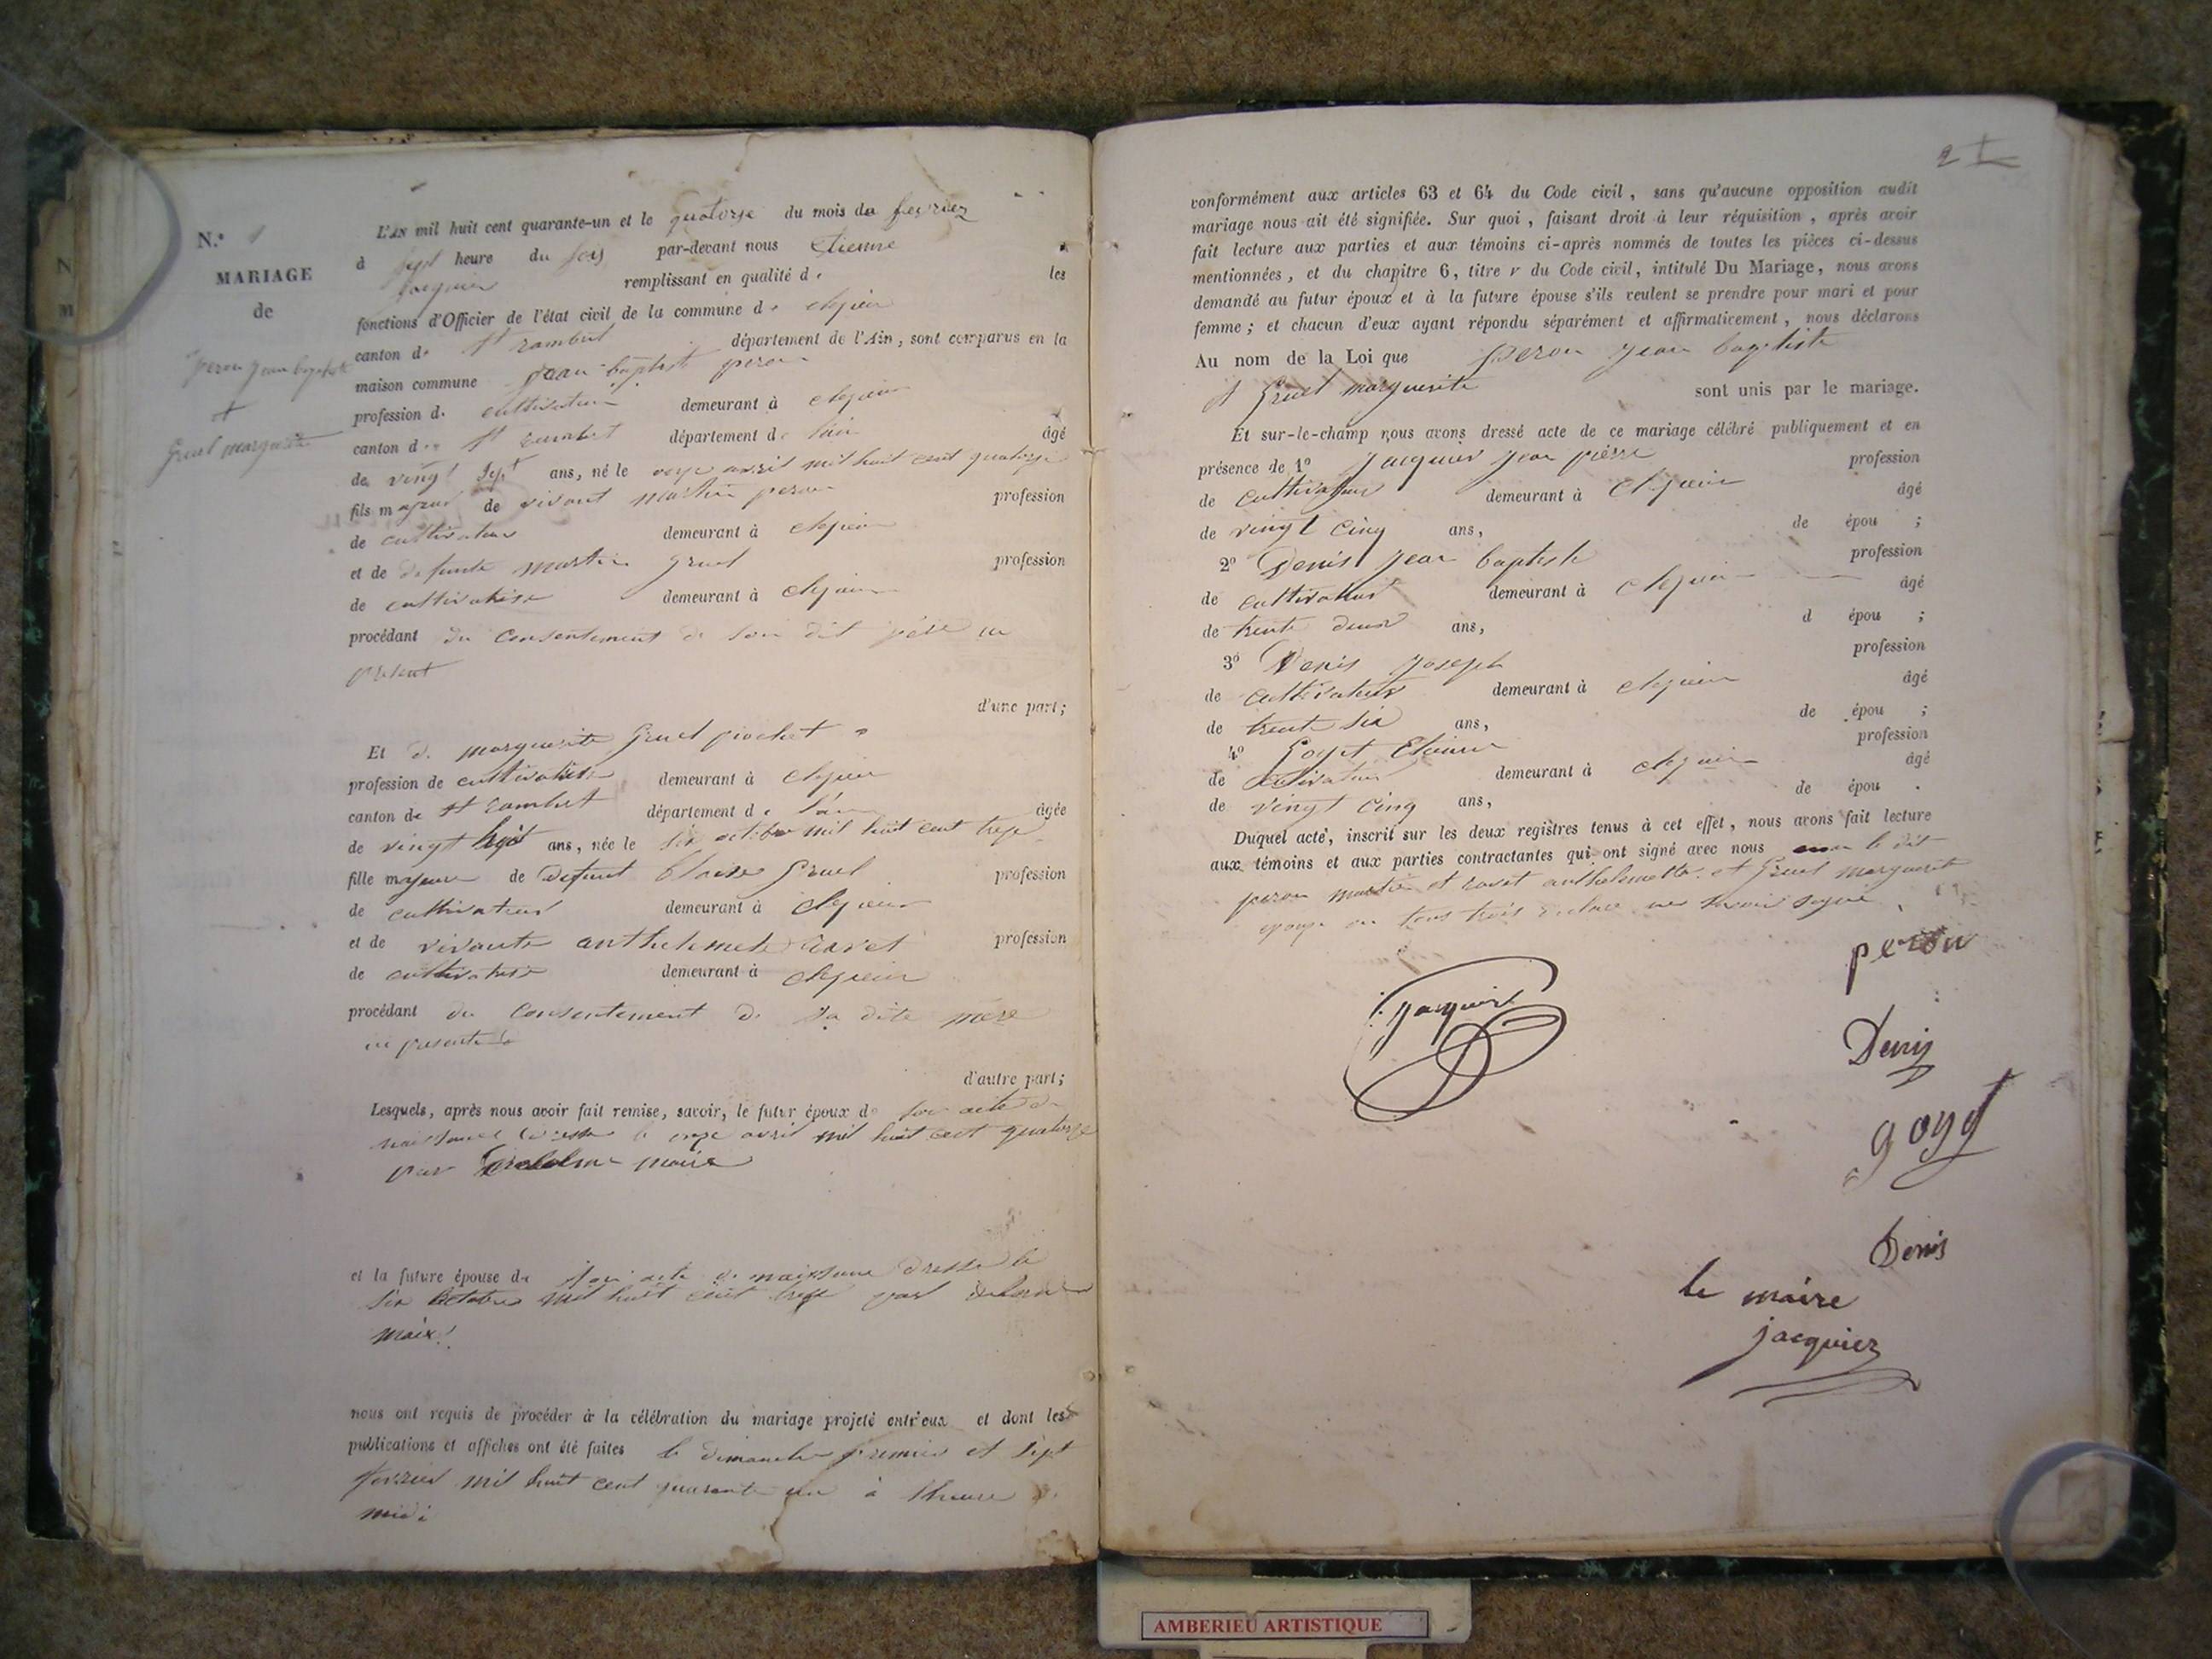 N.º 1
MARIAGE
de
peron jean baptiste
et
Gruel marguerite
L'AN mil huit cent quarante-un et le quatorze du mois de fevrier
à sept heure du soir par-devant nous Etienne
Jacquier remplissant en qualité de les
fonctions d'Officier de l'état civil de la commune de
canton de St rambert département de l'Ain, sont comparus en la
maison commune jean baptist peron
profession de cultivateur demeurant à
canton de St rambert département de l'ain âgé
de vingt sept ans, né le onze avril mil huit cent quatorze
fils majeur de vivant martin peron profession
de cultivateur demeurant à
et de defunte martine gruel profession
de cultivatrise demeurant à
procédant du consentement de son dit père ici
présent
d'une part;
Et de marguerite Gruel piochet
profession de cultivatrise demeurant à
canton de St rambert département de l'ain âgée
de vingt huit ans, née le six octobre mil huit cent treze
fille majeure de defunt blaise Gruel profession
de cultivateur demeurant à
et de vivante anthelmette ravet profession
de cultivatrise demeurant à
procédant du consentement de sa dite mere
ici presente
d'autre part;
Lesquels, après nous avoir fait remise, savoir, le futur époux de son acte de
naissance dressé le onze avril mil huit cent quatorze
par maire
et la future épouse de son acte de naissance dressé le
six octobre mil huit cent treze par
maire
nous ont requis de procéder à la célébration du mariage projeté entr'eux et dont les
publications et affiches ont été faites le dimanche premier et sept
fevrier mil huit cent quarante un à l'heure de
midi
2
conformément aux articles 63 et 64 du Code civil, sans qu'aucune opposition audit
mariage nous ait été signifiée. Sur quoi, faisant droit à leur réquisition, après avoir
fait lecture aux parties et aux témoins ci-après nommés de toutes les pièces ci-dessus
mentionnées, et du chapitre 6, titre v du Code civil, intitulé Du Mariage, nous avons
demandé au futur époux et à la future épouse s'ils veulent se prendre pour mari et pour
femme; et chacun d'eux ayant répondu séparément et affirmativement, nous déclarons
Au nom de la Loi que peron jean baptiste
et Gruel marguerite sont unis par le mariage.
Et sur-le-champ nous avons dressé acte de ce mariage célébré publiquement et en
présence de 1º Jacquier jean pierre profession
de cultivateur demeurant à âgé
de vingt cinq ans, de épou ;
2º Denis jean baptiste profession
de cultivateur demeurant à âgé
de trente deux ans, d épou ;
3º Denis joseph profession
de cultivateur demeurant à âgé
de trente six ans, de épou ;
4º Goyet Etienne profession
de cultivateur demeurant à âgé
de vingt cinq ans, de épou .
Duquel acte, inscrit sur les deux registres tenus à cet effet, nous avons fait lecture
aux témoins et aux parties contractantes qui ont signé avec nous non le dit
peron martin et ravet anthelmette et Gruel marguerite
tous trois ne savoir signé
peron
Jacquier
Denis
goyet
Denis
le maire
jacquier
AMBERIEU ARTISTIQUE